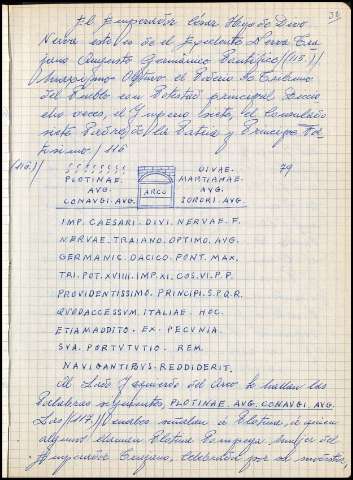 39
El Emperador César Hijo de Divo
Nerva esto es de el Excelente Nerva Tra
jano Augusto Germánico Pontífice/(115)/
Maxsimo Obtuvo el Poder de Tribuno
del Pueblo con Potestad principal Dieci
ocho veces, el Imperio siete, el Consulado
siete Padre de la Patria y Principe
/116
(116)/
PLOTINAE.
AVG.
CONAVGI.AVG.
ARCO
DIVAE.
MARTIANAE.
AVG.
SORORI.AVG.
79
IMP. CAESARI. DIVI. NERVAE. F.
NERVAE. TRAIANO. OPTIMO. AVG.
GERMANIC. DACICO. PONT. MAX.
TRI. POT. XVIIII. IMP. XI. COS. VI. P. P.
PROVIDENTISSIMO. PRINCIPI. S. P. Q. R.
QVODACCESSVM. ITALIAE. HOC.
ETIAMADDITO. EX. PECVNIA.
SVA. PORTVTVTIO. REM.
NAVIGANTIBVS. REDDIDERIT.
Al Lado Izquierdo del Arco se hallan las
Palabras siguientes, PLOTINAE. AVG. CONAVGI. AVG.
Las/(117)/Quales señalan a Plotina, a quien
algunos llaman Plotina Pompeya muger del
Emperador Trajano, celebrada por su modestia,